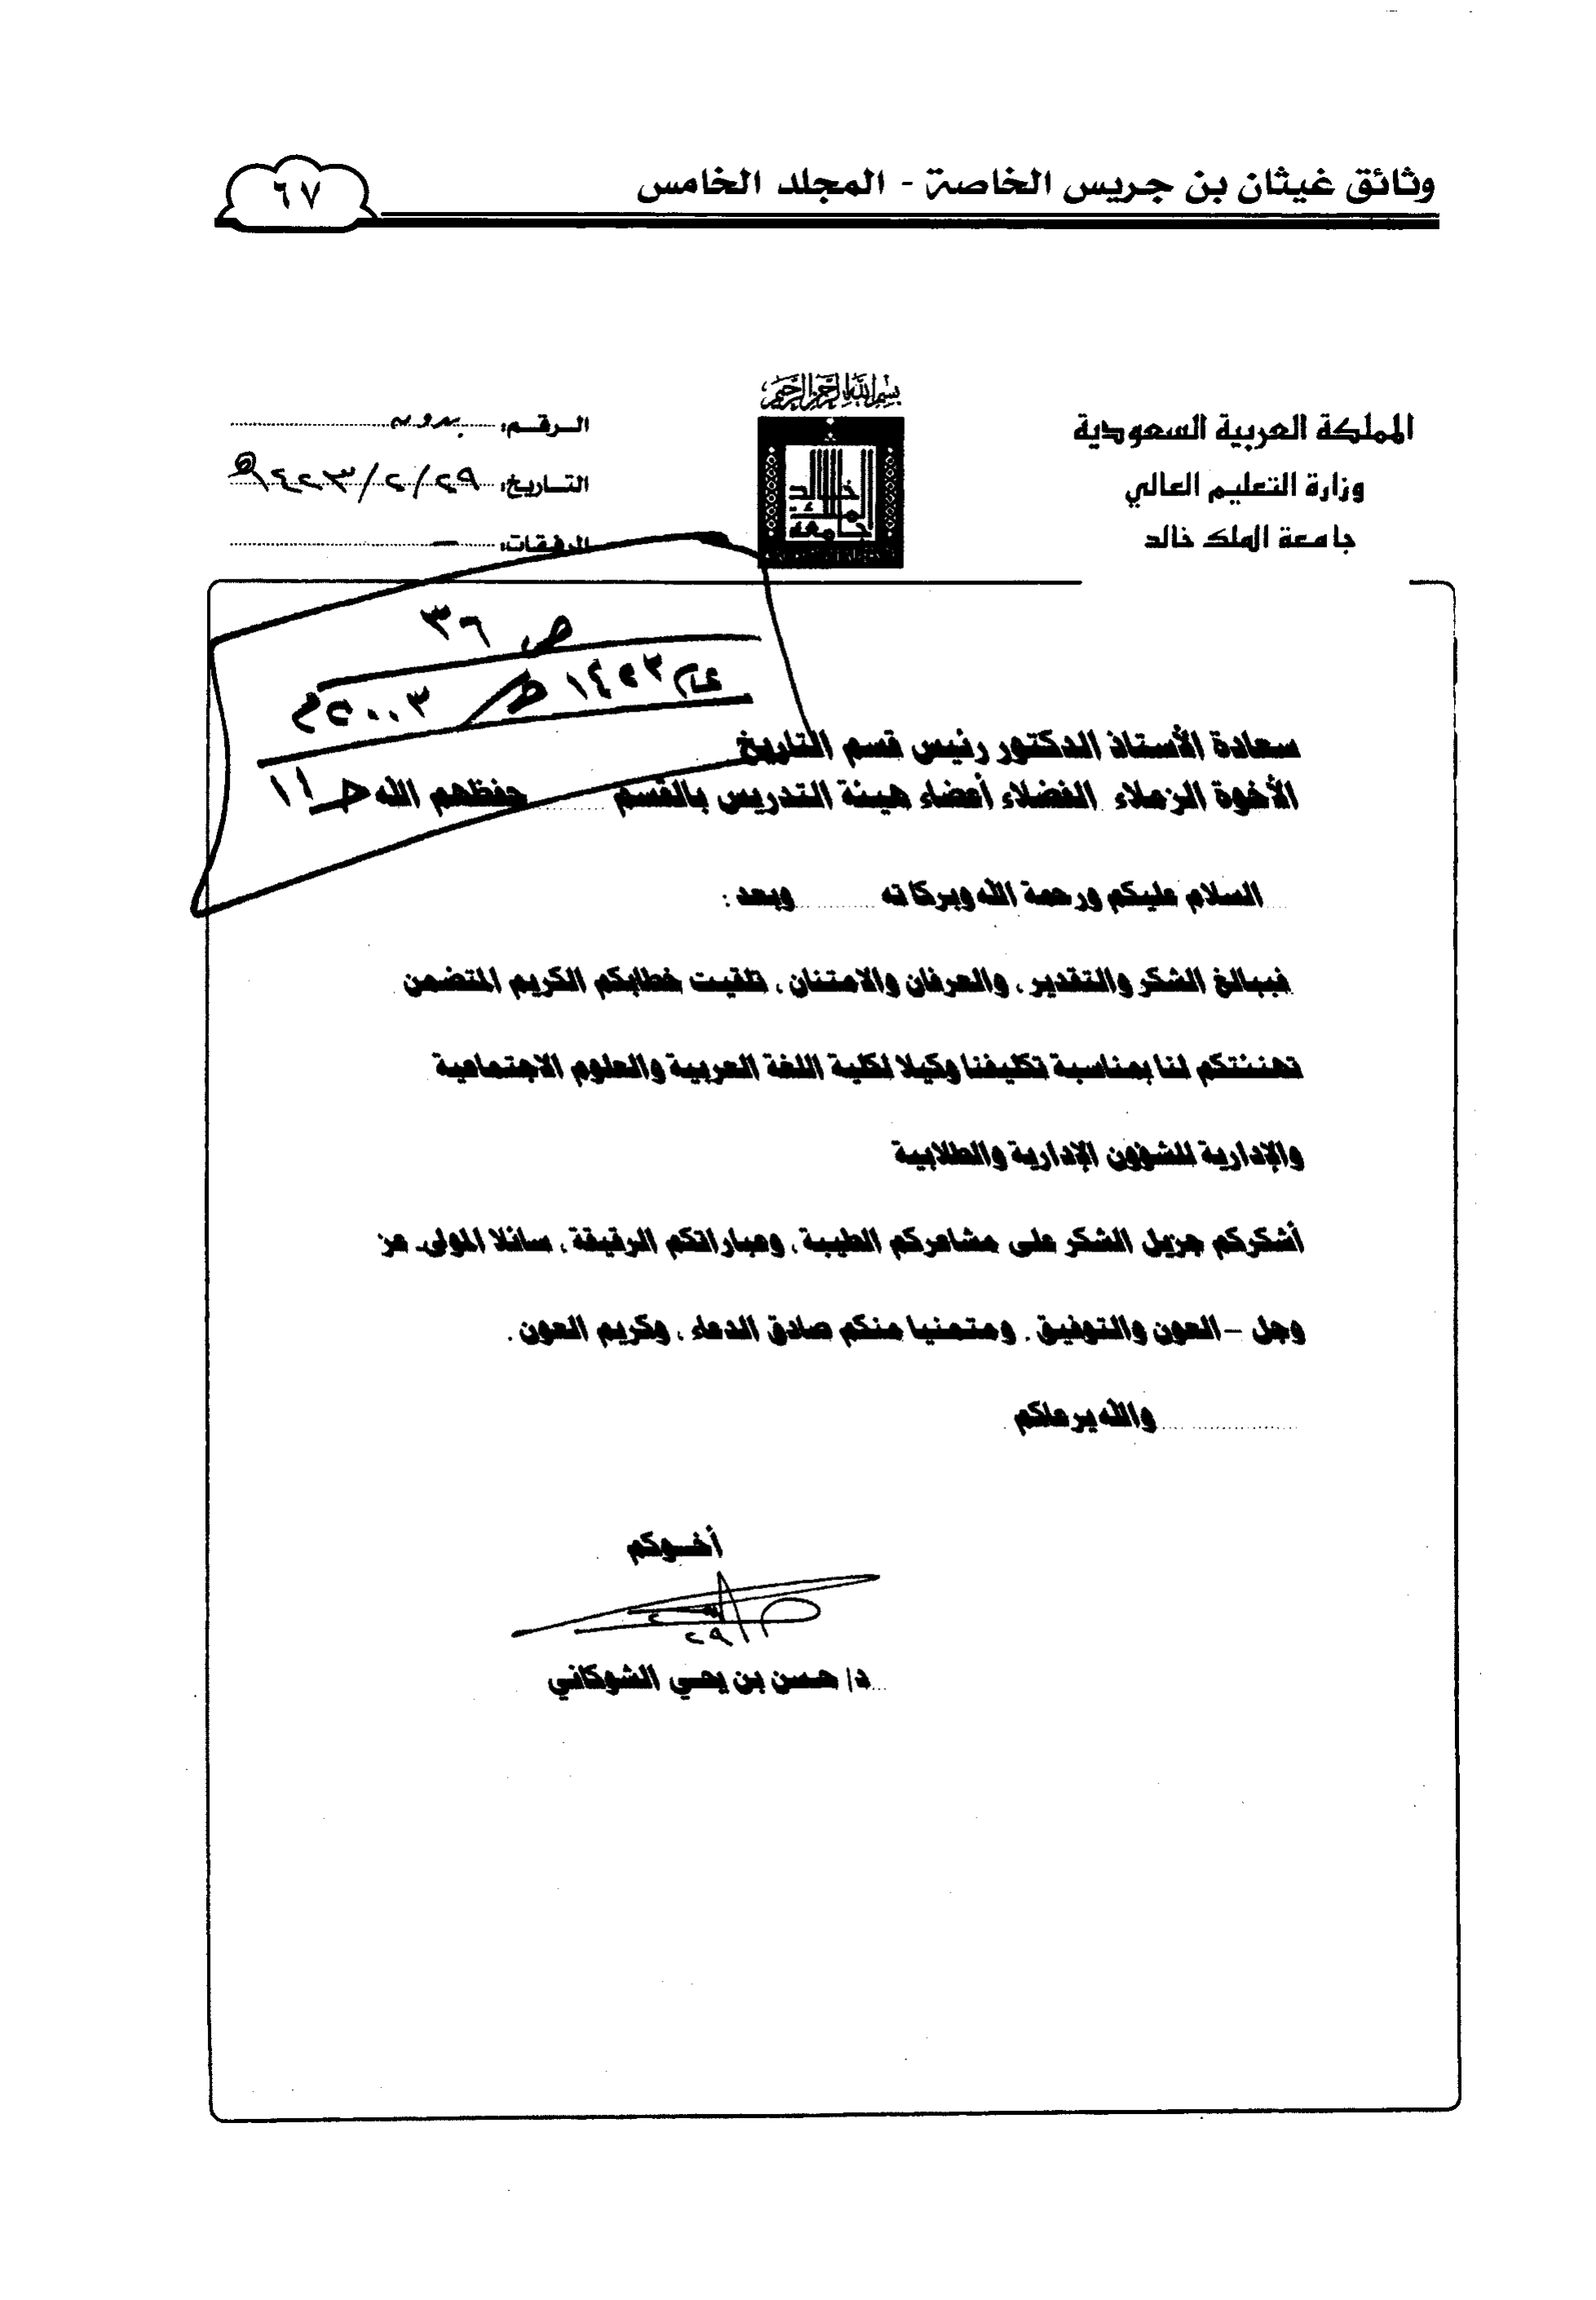 وثائق غيثان بن جريس الخاصة - المجلد الخامس
٦٧
المملكة العربية السعودية
وزارة التعليم العالي
جامعة الملك خالد
بسم الله الرحمن الرحيم
جامعة الملك خالد
الرقم: بدون
التاريخ: ٢٩/٢/١٤٢٣هـ
المرفقات: –
ص ٣٦
عام ١٤٢٣هـ / ٢٠٠٣م
سعادة الأستاذ الدكتور رئيس قسم التاريخ
الأخوة الزملاء الفضلاء أعضاء هيئة التدريس بالقسم حفظهم الله
السلام عليكم ورحمة الله وبركاته وبعد :
فببالغ الشكر والتقدير ، والعرفان والامتنان ، تلقيت خطابكم الكريم المتضمن
تهنئتكم لنا بمناسبة تكليفنا وكيلا لكلية اللغة العربية والعلوم الاجتماعية
والإدارية للشؤون الإدارية والطلابية
أشكركم جزيل الشكر على مشاعركم الطيبة ، وعباراتكم الرقيقة ، سائلا المولى- عز
وجل – العون والتوفيق . ومتمنيا منكم صادق الدعاء ، وكريم العون .
والله يرعاكم
أخوكم
٢٩
د/ حسن بن يحيي الشوكاني